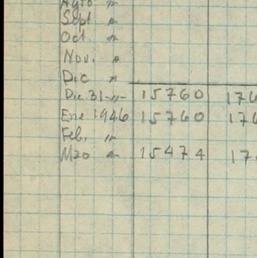 Agto "
Sept "
Oct. "
Nov. "
Dic "
Dic 31-"- 15760 176
Ene 1946 15760 176
Feb. "
Mzo " 15474 17